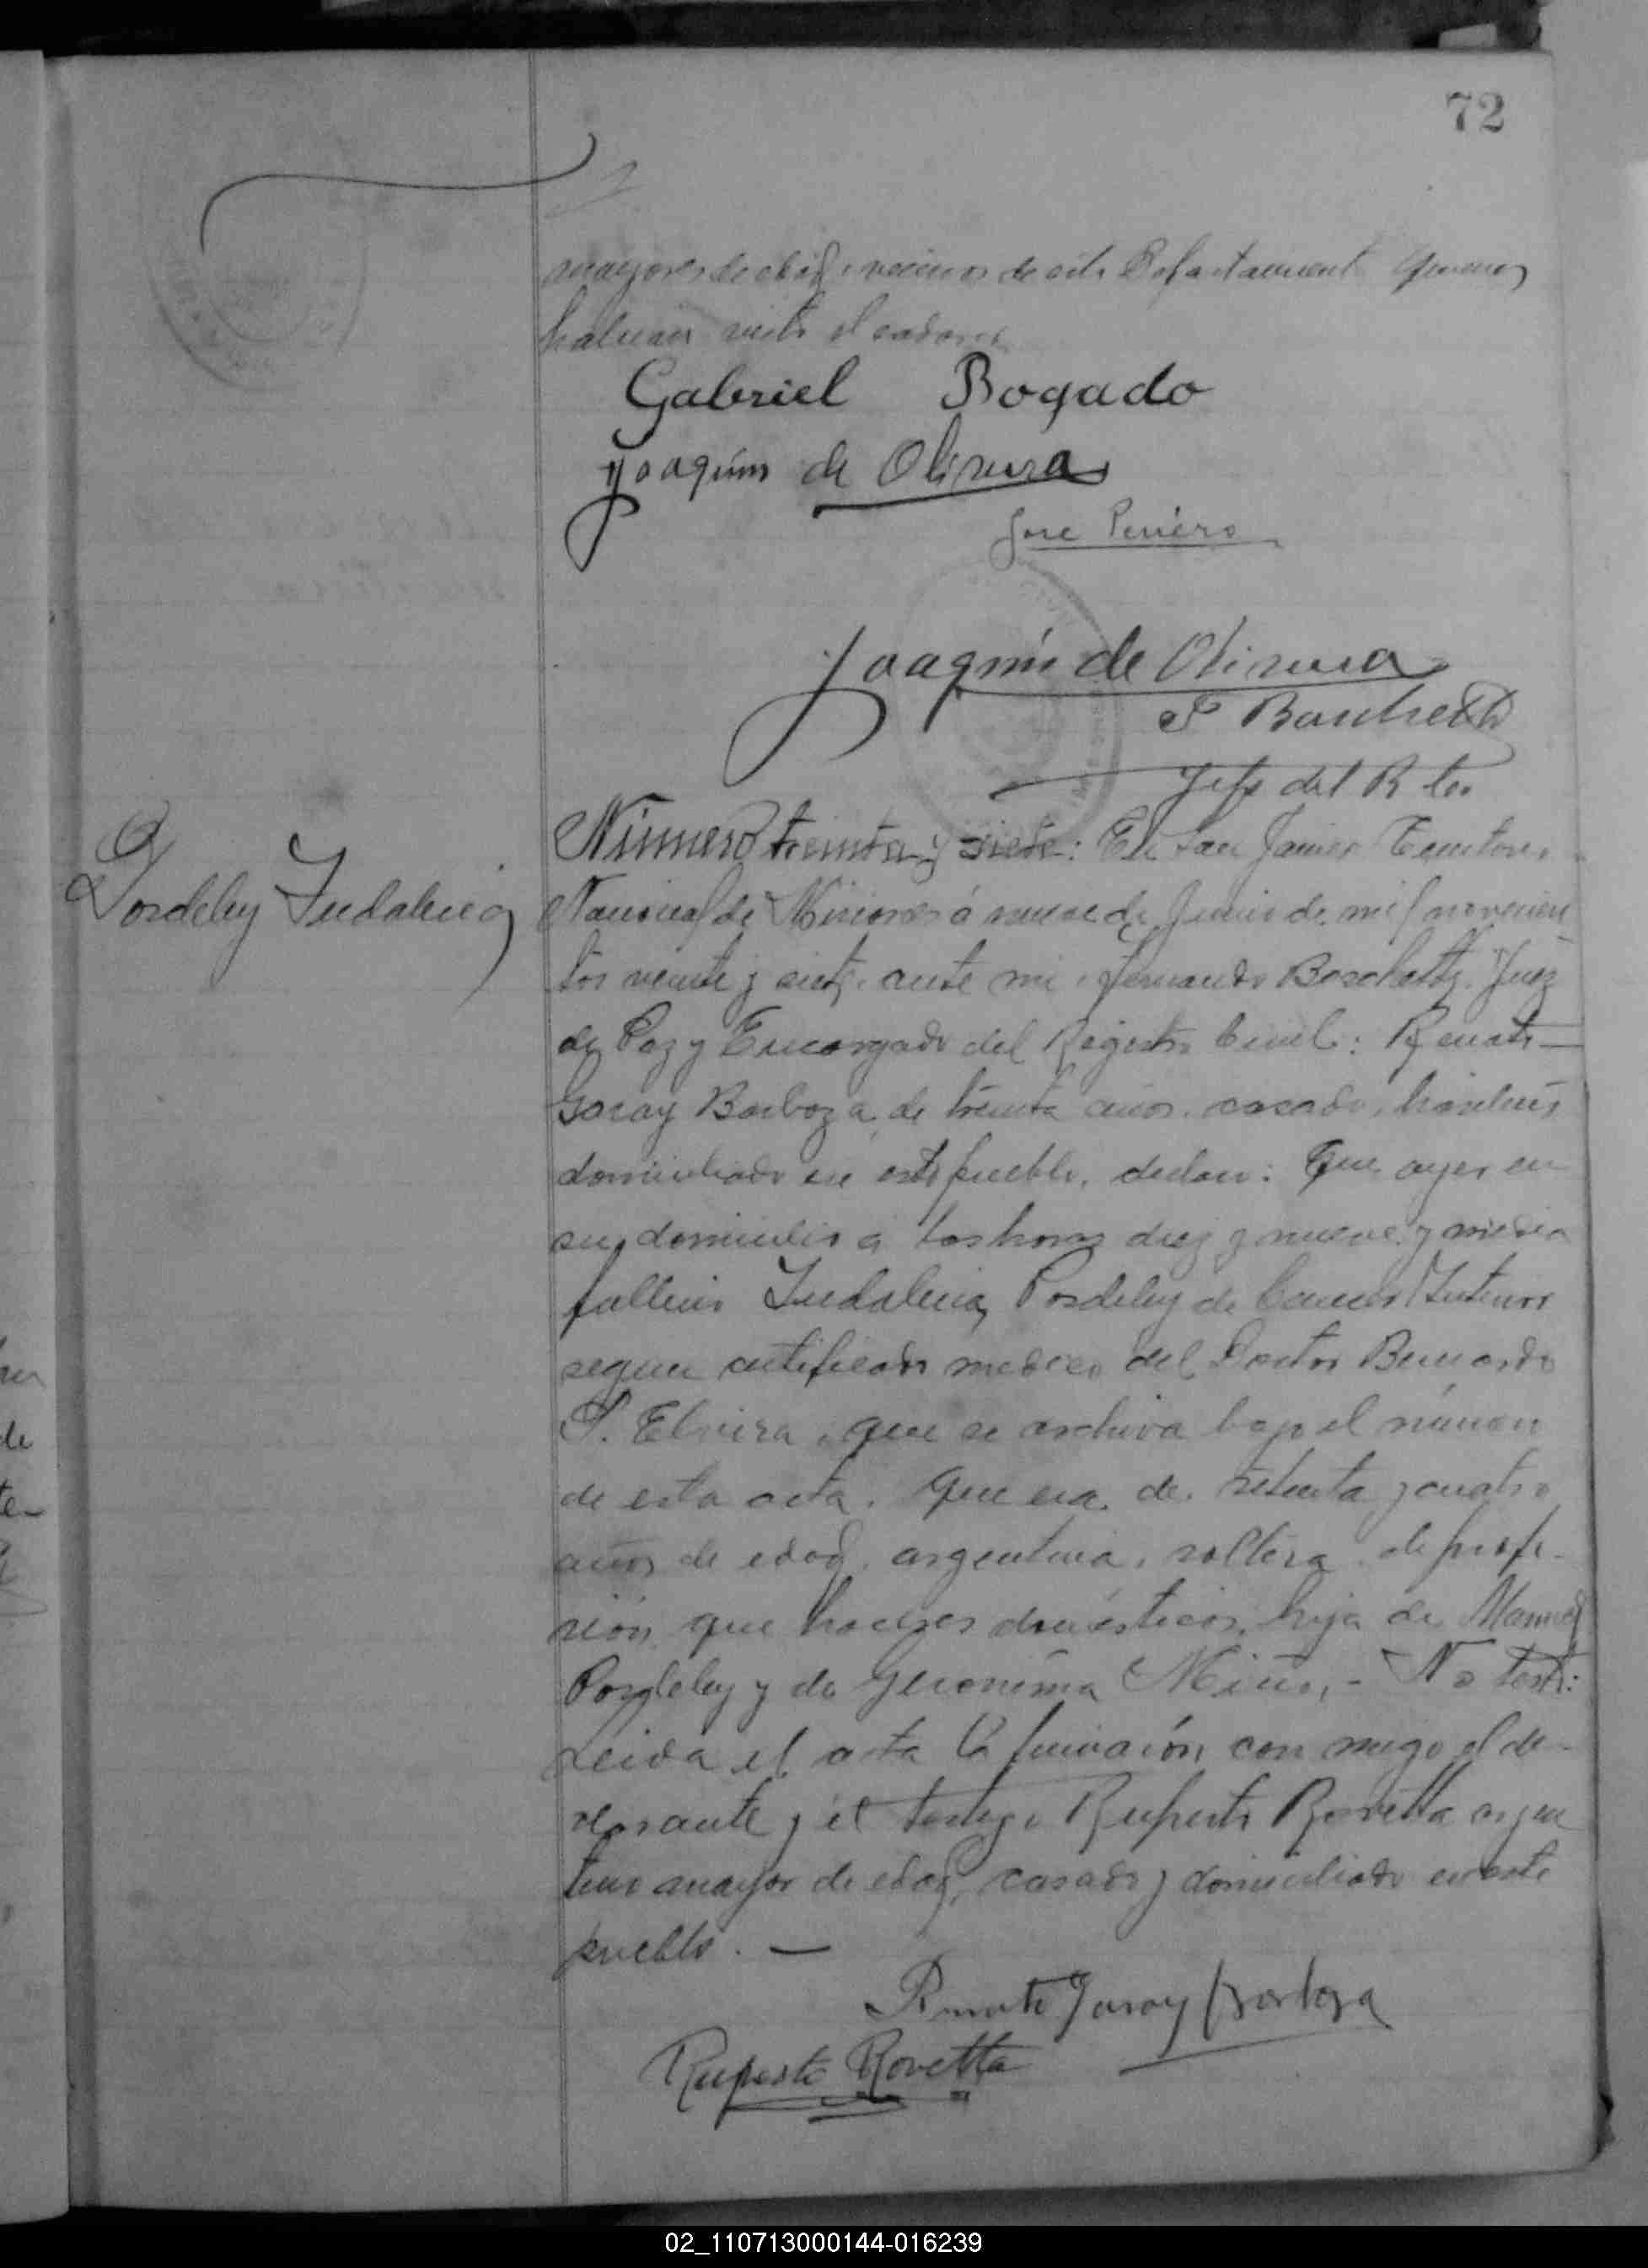 72
mayores de edad, vecinos de este Departamento quienes
habian visto el cadaver
Gabriel Bogado
Joaquim de Olivera
Jose
Joaquin de Olivera
F
Jefe del R
Número treinta y siete: En San Javier Territorio
Pordeley Indalecia
Nacional de Misiones á nueve de Junio de mil novecien
tos veinte y siete, ante mi, Fernando Juez
de Paz y Encargado del Registro Civil:
Garay Barboza, de treinta años, casado,
domiciliado en este pueblo, declaro: Que ayer en
su domicilio á las horas diez y nueve y media
fallecio Indalecia Pordeley de
segun certificado medico del Doctor Bernardo
P. Elvira, que se archiva bajo el número
de esta acta. Que era de setenta y cuatro
años de edad, argentina, soltera, de profe-
sión que haceres domésticos, hija de Manuel
Pordeley y de Geronima Miño,- No testó:
Leida el acta la firmarón con migo el de-
clarante y el testigo Ruperto Rovetta argen
tino mayor de edad, casado y domiciliado en este
pueblo. —
Garay Barboza
Ruperto Rovetta
02_110713000144-016239